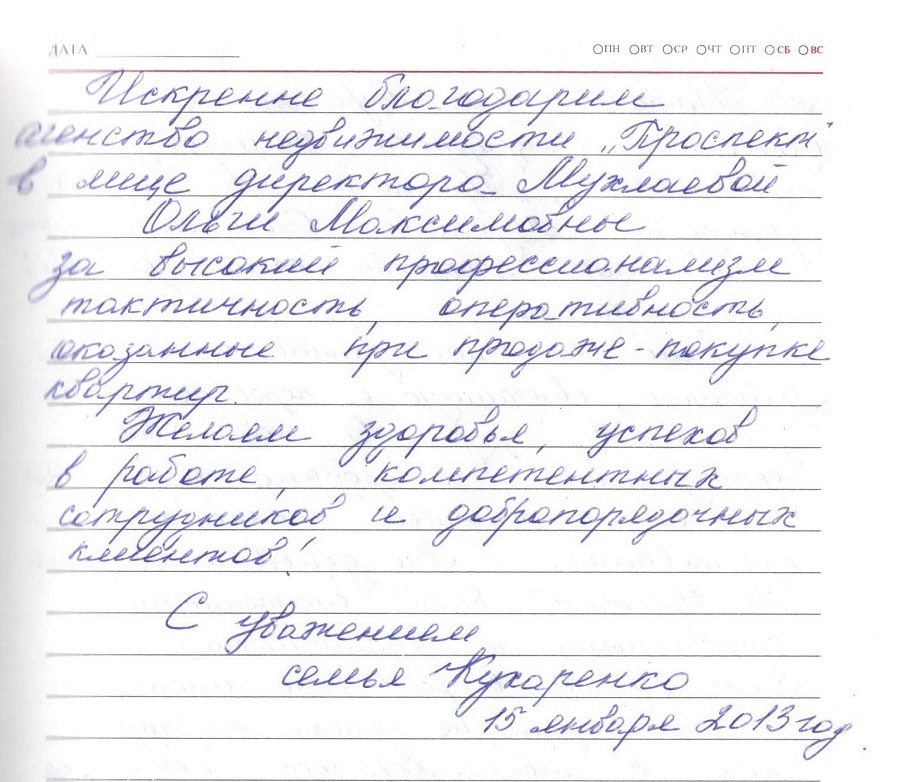 ДАТА ПН ВТ СР ЧТ ПТ СБ ВС
Искренне благодарим
агенство недвижимости „Проспект"
в лице директора Мухлаевой
Ольги Максимовны
за высокий профессионализм
тактичность, оперативность,
оказанные при продаже-покупке
квартир.
Желаем здоровья, успехов
в работе, компетентных
сотрудников и добропорядочных
клиентов!
С уважением
семья Кухаренко
15 января 2013 год